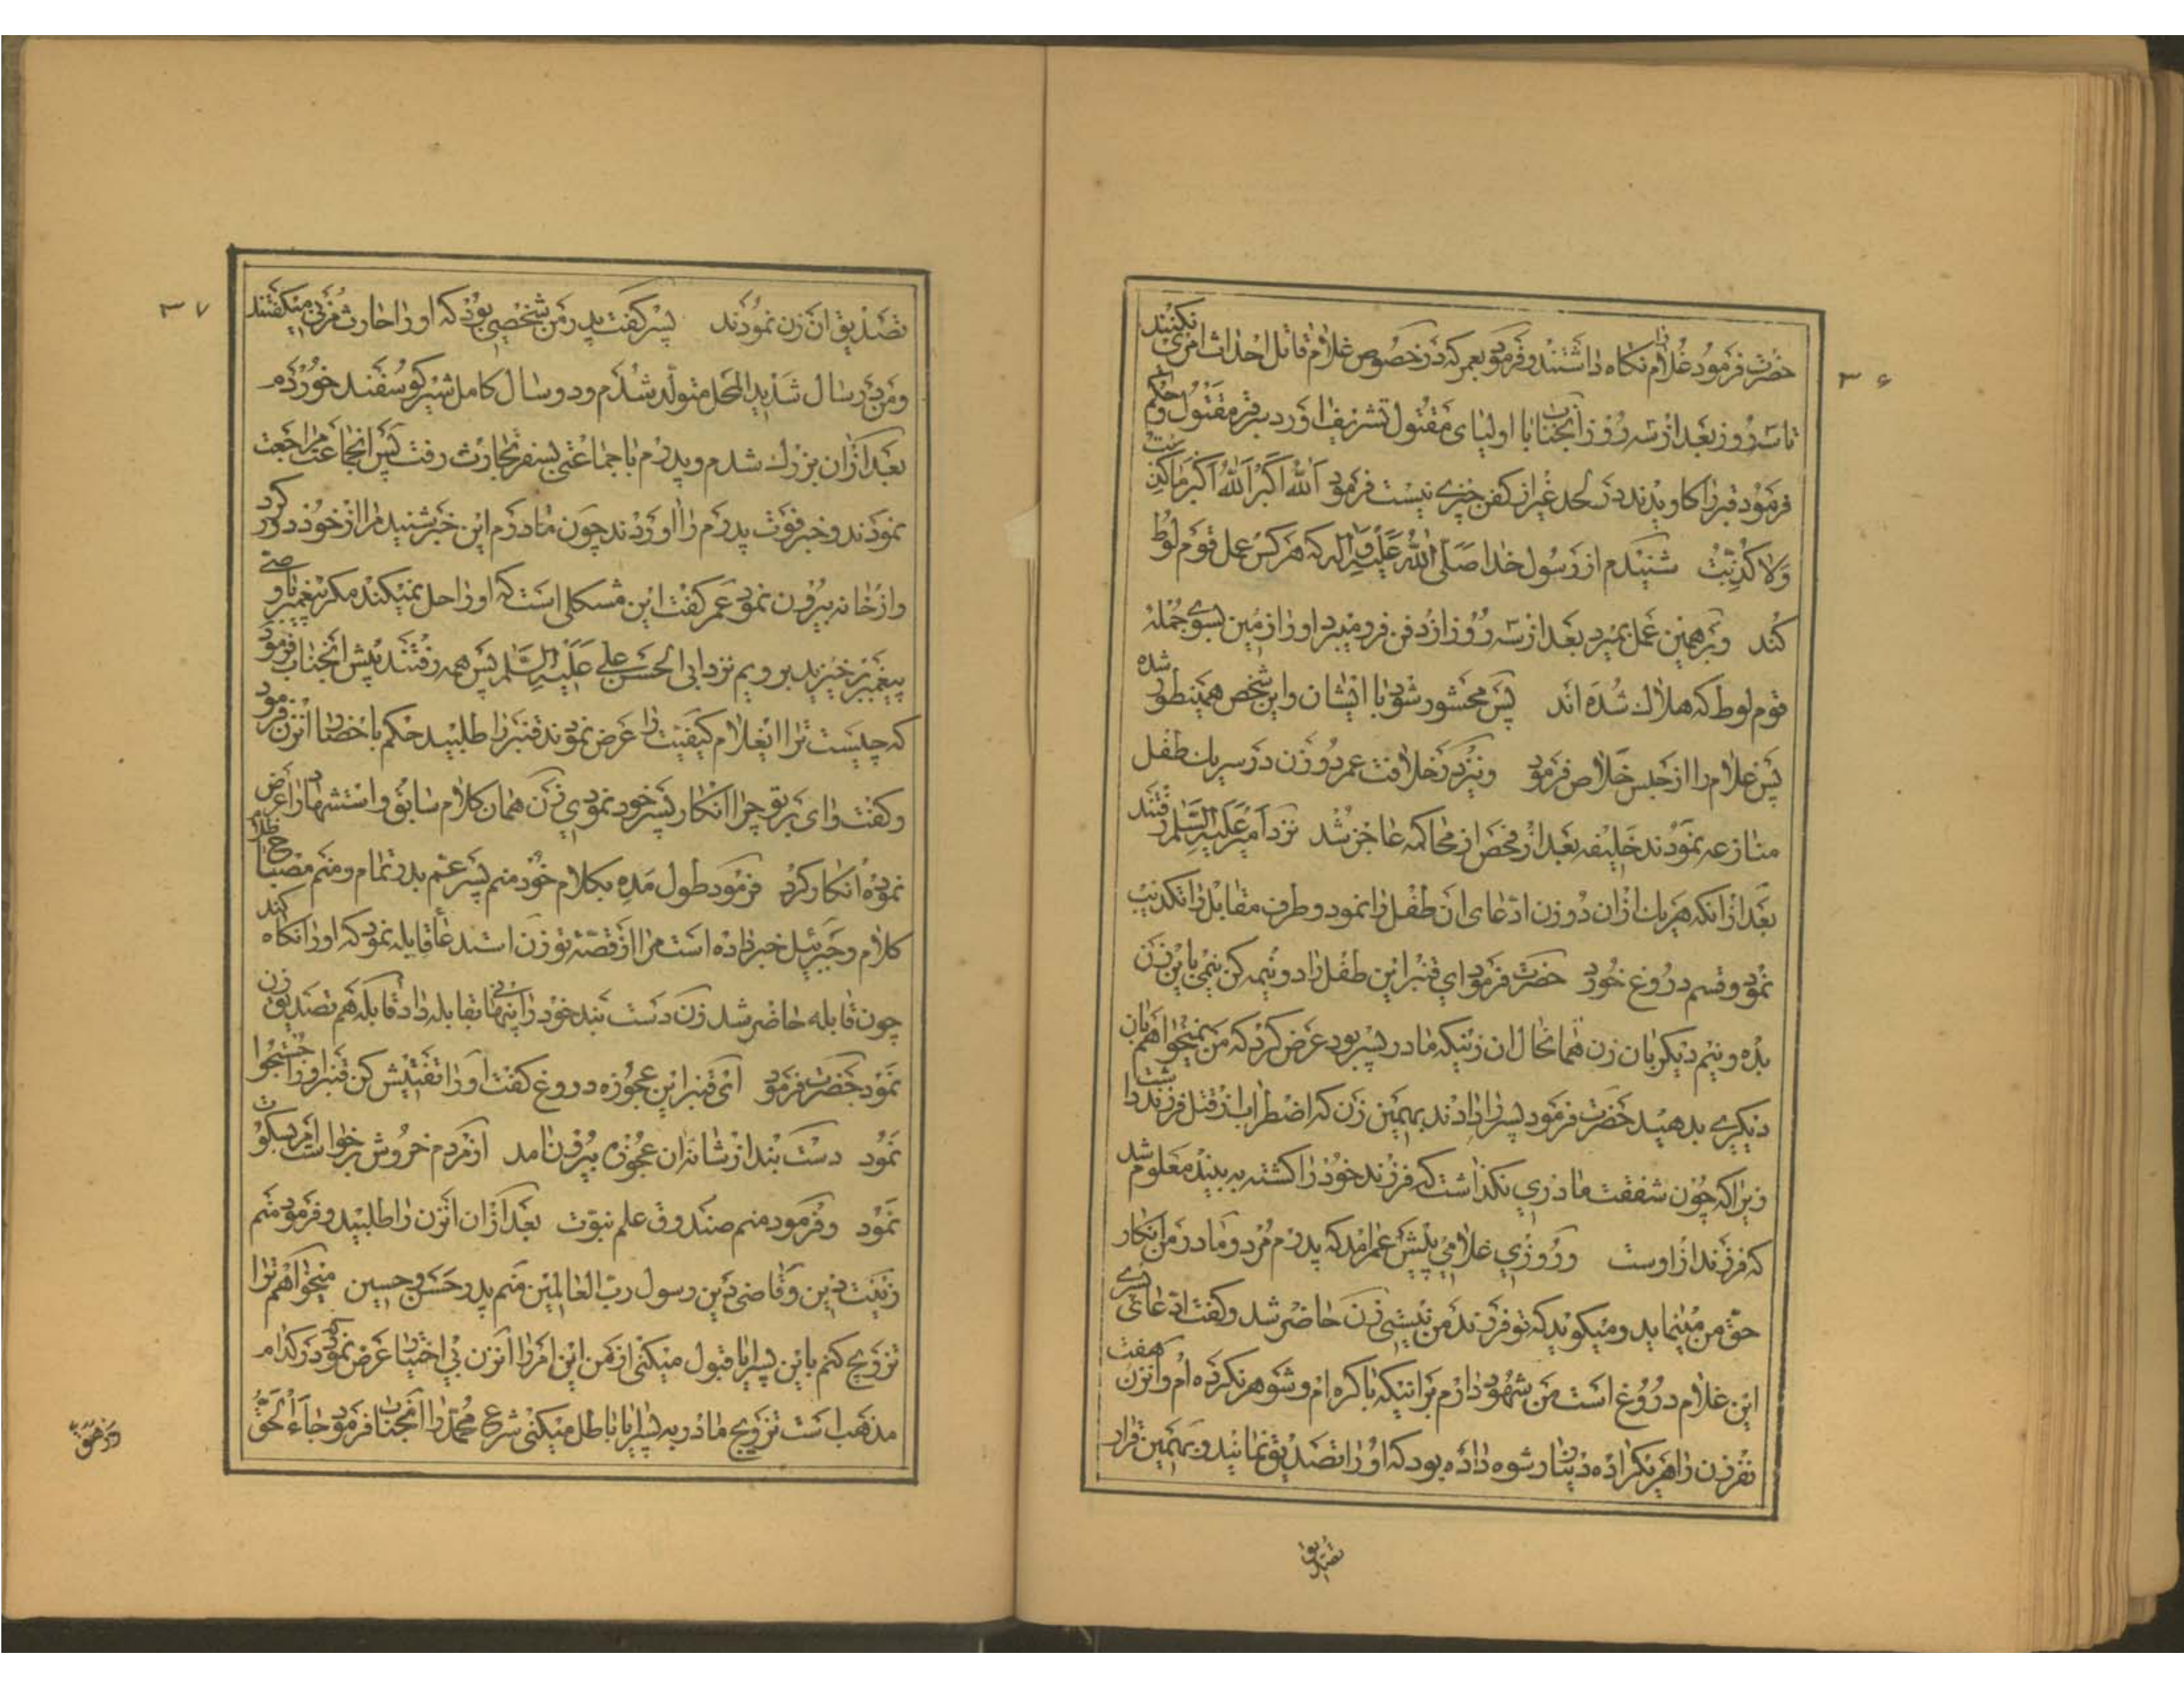 ۳۶
حضرت فرمود غلام را نکاه داشتند و فرمود بعمر که در خصوص غلام قاتل احداث امری نکنند
تا سه روز بعد از سه روز آنجناب با اولیای مقتول تشریف آورد بسر قبر مقتول و حکم
فرمود قبر را کاویدند در لحد غیر از کفن چیزی نیست فرمود الله اکبر الله اکبر ما کذبت
ولا کذبت شنیدم از رسول خدا صلی الله علیه و آله که هر کس عمل قوم لوط
کند و بر همین عمل بمیرد بعد از سه روز از دفن فرو میبرد او را زمین بسوی جمله
قوم لوط که هلاک شده اند پس محشور شود با ایشان و این شخص همینطور شده
پس غلام را از حبس خلاص فرمود و نیز در خلافت عمر دو زن در سر یک طفل
منازعه نمودند خلیفه بعد از فحص از محاکمه عاجز شد نزد امیر علیه السلام رفتند
بعد از انکه هر یک از ان دو زن ادعای ان طفل را نمود و طرف مقابل را تکذیب
نمود و قسم دروغ خورد حضرت فرمود ای قنبر این طفل را دو نیمه کن نیمی باین زن
بده و نیم دیکر بان زن فمانحال ان زنیکه مادر پسر بود عرض کرد که من نمیخواهم بان
دیکری بدهید حضرت فرمود پسر را دادند بهمین زن که اضطراب از قتل فرزند داشت
زیرا که چون شفقت مادری نکذاشت که فرزند خود را کشته به بیند معلوم شد
که فرزند از اوست و روزی غلامی پیش عمر امد که پدرم مرد و مادر من انکار
حق من مینماید و میکوید که تو فرزند من نیستی زن حاضر شد و کفت ادعای پسری
این غلام دروغ است من شهود دارم بر اینکه باکره ام و شوهر نکرده ام و انزن هفت
نفر زن را هر یک را ده دینار رشوه داده بود که او را تصدیق نمایند و بهمین قرار
تصدیق
۳۷
تصدیق ان زن نمودند پسر کفت پدر من شخصی بود که او را حارث مزنی میکفتند
و من در سال شدید المحل متولد شدم و دو سال کامل شیر کوسفند خوردم
بعد از ان بزرک شدم و پدرم با جماعتی بسفر تجارت رفت پس انجماعت مراجعت
نمودند و خبر فوت پدرم را اوردند چون مادرم این خبر شنید مرا از خود دور کرد
و از خانه بیرون نمود عمر کفت این مشکلی است که او را حل نمیکند مکر پیغمبر یا وصی
پیغمبر برخیزید برویم نزد ابی الحسن علی علیه السلام پس همه رفتند پیش آنجناب فرمود
که چیست ترا ایغلام کیفیت را عرض نمود قنبر را طلبید حکم باحضار انزن فرمود
و کفت وای بر تو چرا انکار پسر خود نمودی زن همان کلام سابق و استشهاد را عرض
نموده انکار کرد فرمود طول مده بکلام خود منم پسر عم بدر تمام و منم مصباح ظلام
کلام و جبرئیل خبر داده است مرا از قصه تو زن استدعا قابله نمود که او را نکاه کند
چون قابله حاضر شد زن دست بند خود را پنهانی بقابله داد قابله هم تصدیق زن
نمود حضرت فرمود ای قنبر این عجوزه دروغ کفت او را تفتیش کن قنبر او را جستجوا
نمود دست بند از شانه ان عجوزه بیرون امد از مردم خروش برخواست امر بسکوت
نمود و فرمود منم صندوق علم نبوت بعد از ان انزن را طلبید و فرمود منم
زینت دین و قاضی دین رسول رب العالمین منم پدر حسن و حسین میخواهم ترا
تزویج کنم باین پسر ایا قبول میکنی از من این امر را انزن بی اختیار عرض نمود که در کدام
مذهب است تزویج مادر به پسر ایا باطل میکنی شرع محمد را آنجناب فرمود جاء الحق
وزهق